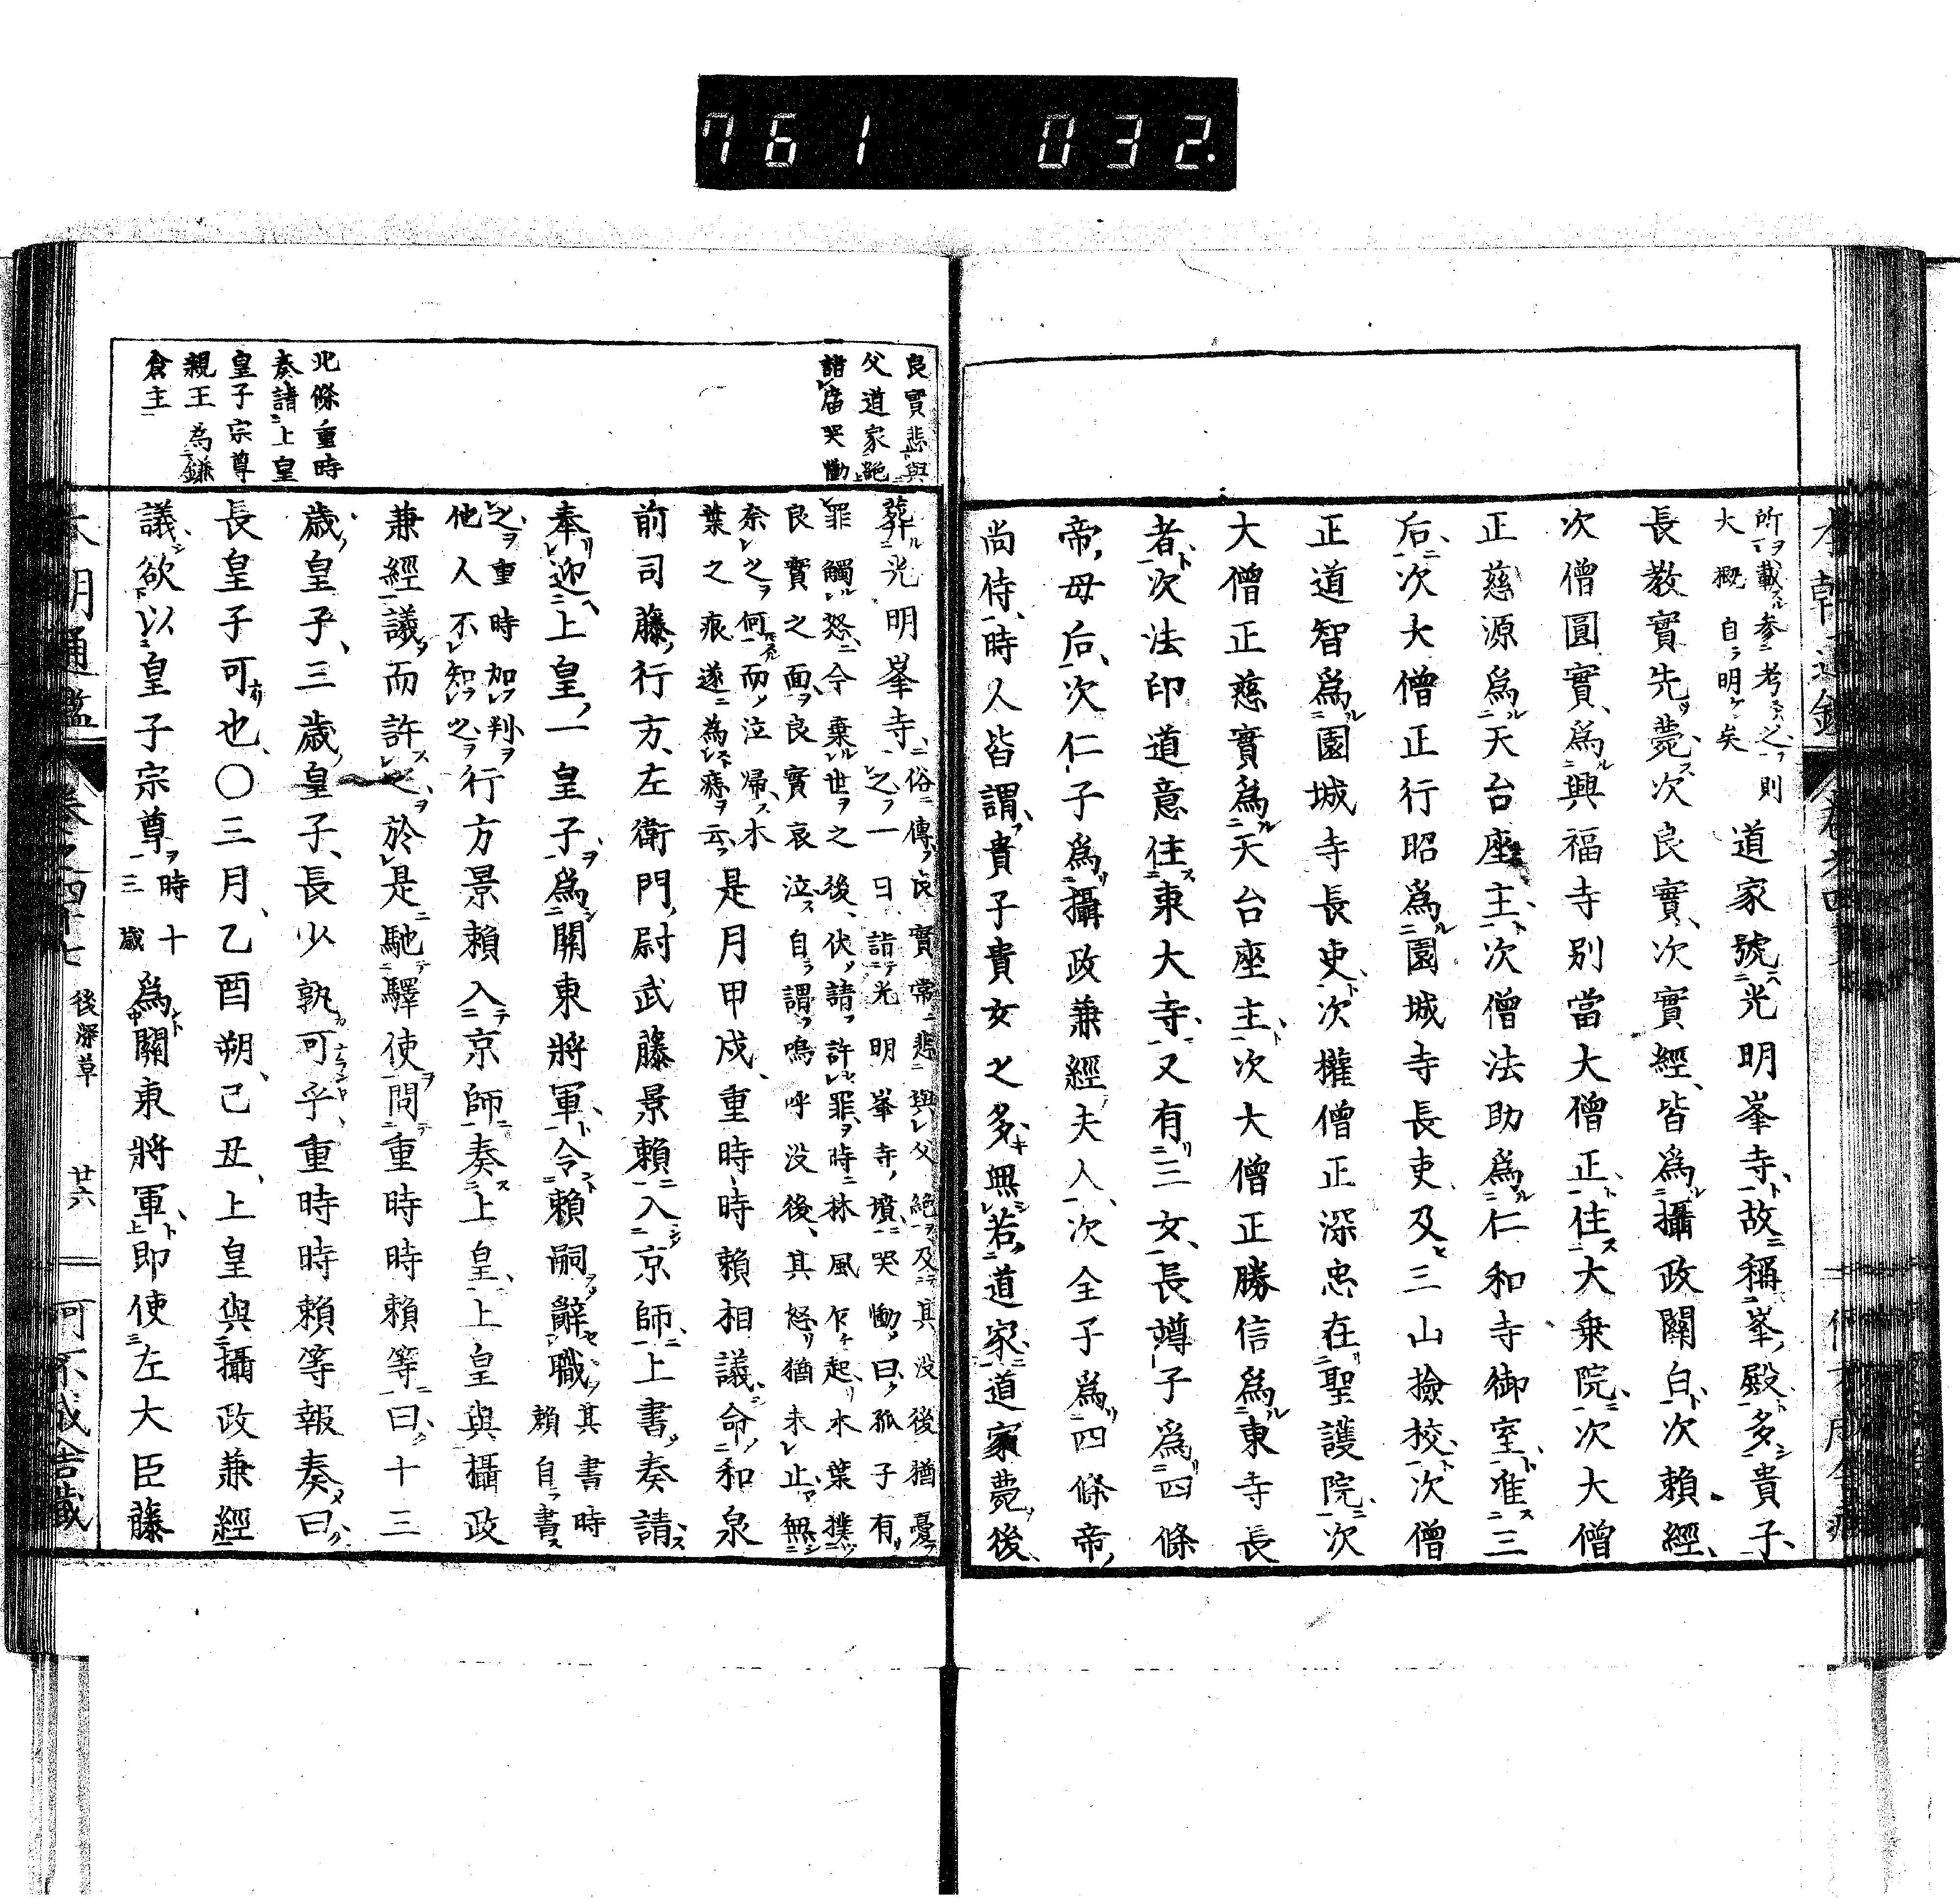 761 032.
所載參考之則
大概自明矣
道家號光明峯寺故稱峯殿多貴子
長教實先薨次良實次實經皆爲攝政關白次賴經
次僧圓實爲興福寺別當大僧正住大乗院次大僧
正慈源爲天台座主次僧法助爲仁和寺御室准三
后次大僧正行昭爲園城寺長吏及三山撿校次僧
正道智爲園城寺長吏次權僧正深忠在聖護院次
大僧正慈實爲天台座主次大僧正勝信爲東寺長
者次法印道意住東大寺又有三女長竴子爲四條
帝母后次仁子爲攝政兼經夫人次全子爲四條帝
尚侍時人皆謂貴子貴女之多無若道家道家薨後
良實悲與
父道家絶
詣庿哭慟
葬光明峯寺
俗傳良實常悲與父絶及其没後猶憂
之一日詣光明峯寺墳哭慟曰孤子有
罪觸怒今棄世之後伏請許罪時林風乍起木葉撲
良實之面良實哀泣自謂嗚呼没後其怒猶未止無
奈之何而泣帰木
葉之痕遂為痣云
是月甲戍重時時賴相議命和泉
前司藤行方左衛門尉武藤景賴入京師上書奏請
奉迎上皇一皇子爲關東將軍令賴嗣辭職
其書時
賴自書
之重時加判
他人不知之
行方景賴入京師奏上皇上皇與攝政
兼經議而許之於是馳驛使問重時時賴等曰十三
歳皇子三歳皇子長少孰可乎重時時賴等報奏曰
長皇子可也〇三月乙酉朔己丑上皇與攝政兼經
北條重時
奏請上皇
皇子宗尊
親王為鎌
倉主
議欲以皇子宗尊
時十
三歳
爲關東將軍即使左大臣藤
本朝通鑑 卷之四十七 後深草 廿六